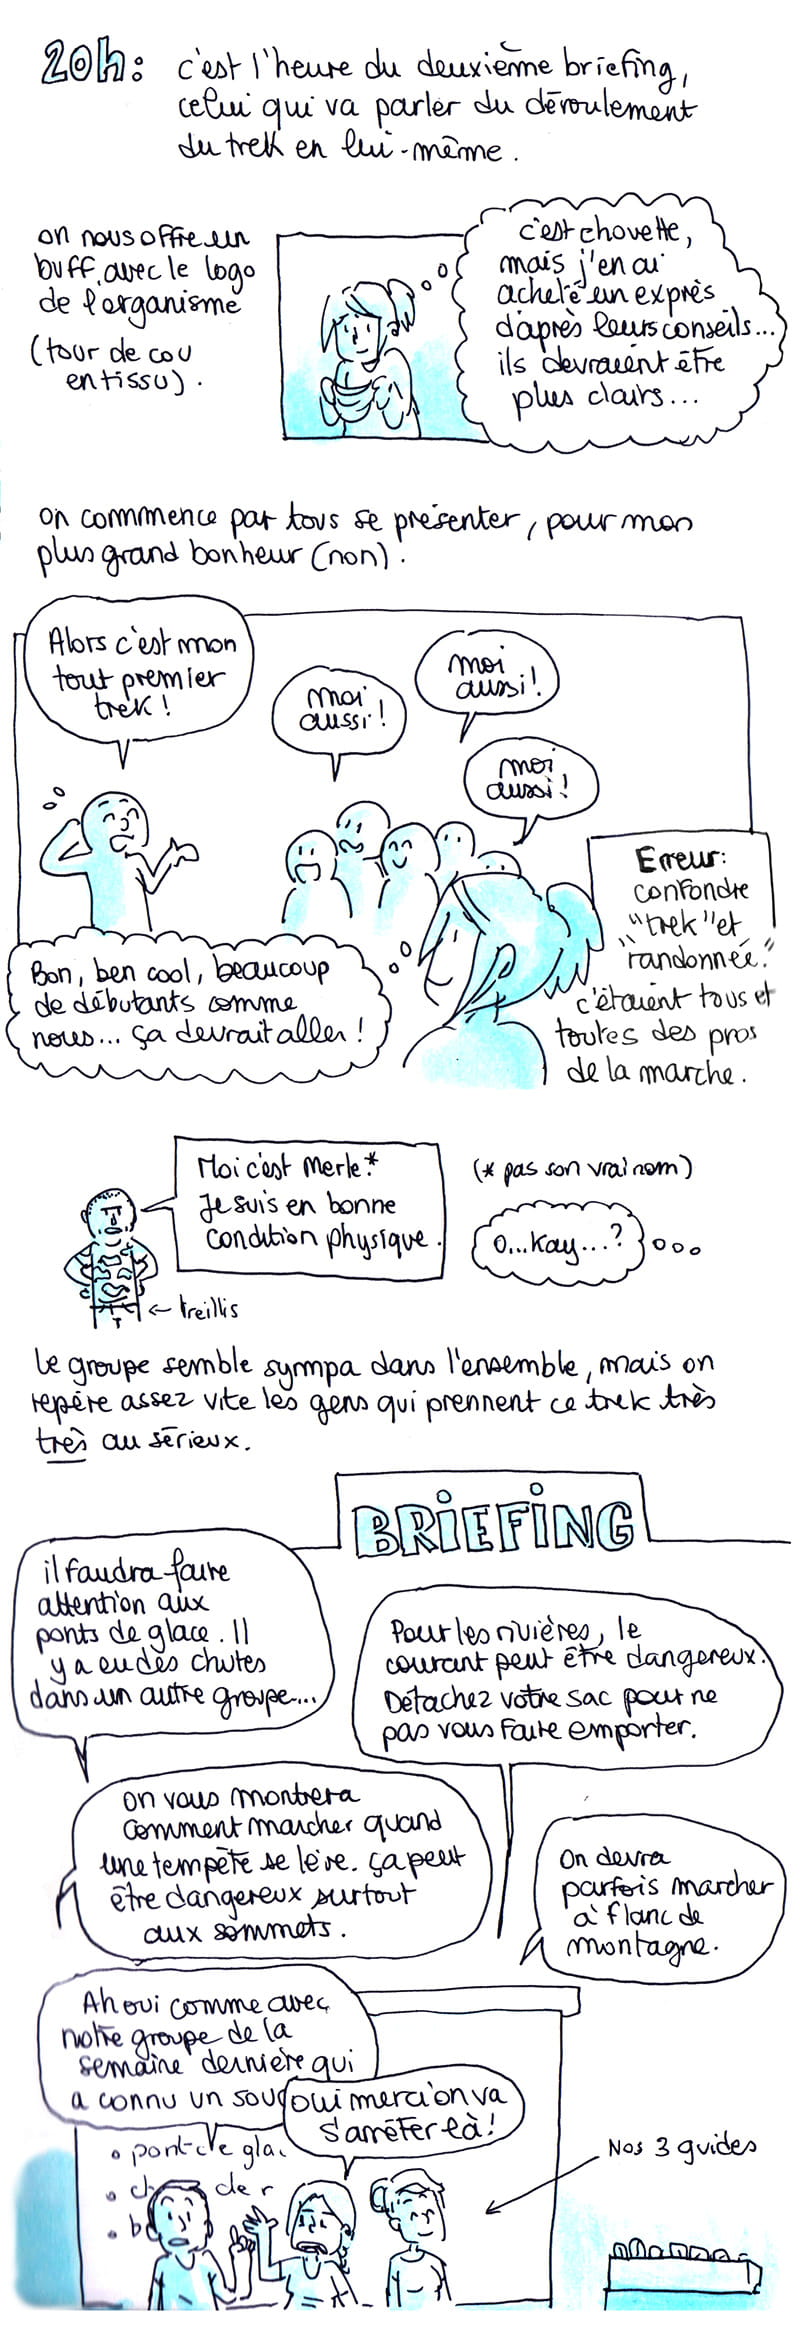 20h:
c'est l'heure du deuxième briefing,
celui qui va parler du déroulement
du trek en lui-même.
on nous offre un
buff, avec le logo
de l'organisme
(tour de cou
en tissu).
c'est chouette,
mais j'en ai
acheté un exprès
d'après leurs conseils...
ils devraient être
plus clairs...
on commence par tous se présenter, pour mon
plus grand bonheur (non).
Alors c'est mon
tout premier
trek!
moi
aussi!
moi
aussi!
moi
aussi!
Bon, ben cool, beaucoup
de débutants comme
nous... ça devrait aller!
Erreur:
confondre
"trek" et
"randonnée."
c'étaient tous et
toutes des pros
de la marche.
Moi c'est Merle.*
Je suis en bonne
condition physique.
(* pas son vrai nom)
O...kay...?
← treillis
Le groupe semble sympa dans l'ensemble, mais on
repère assez vite les gens qui prennent ce trek très
très au sérieux.
BRIEFING
il faudra faire
attention aux
ponts de glace. Il
y a eu des chutes
dans un autre groupe...
Pour les rivières, le
courant peut être dangereux.
Détachez votre sac pour ne
pas vous faire emporter.
on vous montrera
comment marcher quand
une tempête se lève. ça peut
être dangereux surtout
aux sommets.
On devra
parfois marcher
à flanc de
montagne.
Ah oui comme avec
notre groupe de la
semaine dernière qui
a connu un sou
oui merci on va
s'arrêter là!
• pont de gla
Nos 3 guides